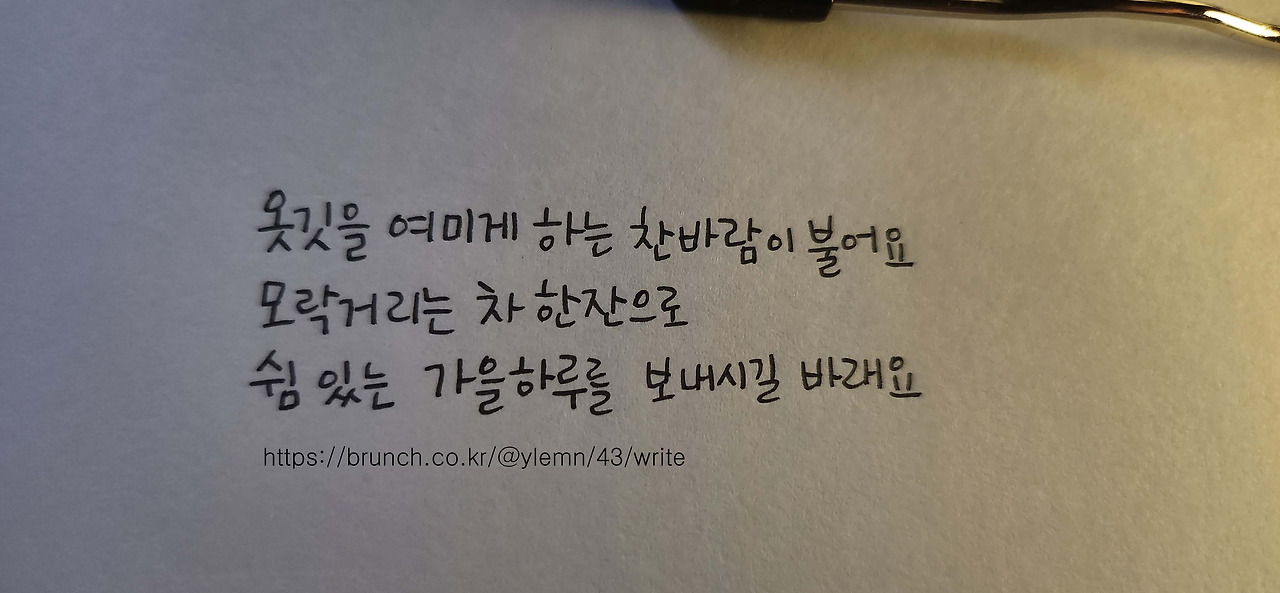 옷깃을 여미게 하는 찬바람이 불어요
모락거리는 차 한잔으로
쉼 있는 가을하루를 보내시길 바래요
https://brunch.co.kr/@ylemn/43/write